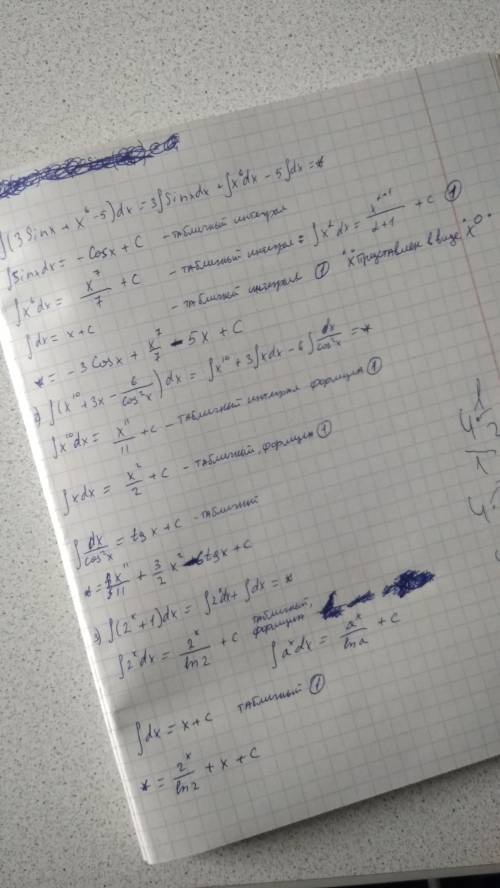 ∫(3Sinx + x⁶ - 5)dx = 3∫Sinxdx + ∫x⁶dx - 5∫dx = *
∫Sinxdx = - Cosx + C - табличный интеграл
∫x⁶dx = x⁷/7 + C - табличный интеграл: ∫x^α dx = x^(α+1)/(α+1) + C ①
∫dx = x + C - табличный интеграл ① "x" представлен в виде "x⁰"
* = - 3Cosx + x⁷/7 - 5x + C
∫(x¹⁰ + 3x - 6/cos²x)dx = ∫x¹⁰ + 3∫xdx - 6∫dx/cos²x = *
∫x¹⁰dx = x¹¹/11 + C - табличный интеграл формула ①
∫xdx = x²/2 + C - табличный, формула ①
∫dx/cos²x = tgx + C - табличный
* = x¹¹/11 + 3/2 x² - 6tgx + C
3) ∫(2ˣ + 1)dx = ∫2ˣdx + ∫dx = *
∫2ˣdx = 2ˣ/ln2 + C табличный, формула
∫aˣdx = aˣ/lna + C
∫dx = x + C табличный ①
* = 2ˣ/ln2 + x + C